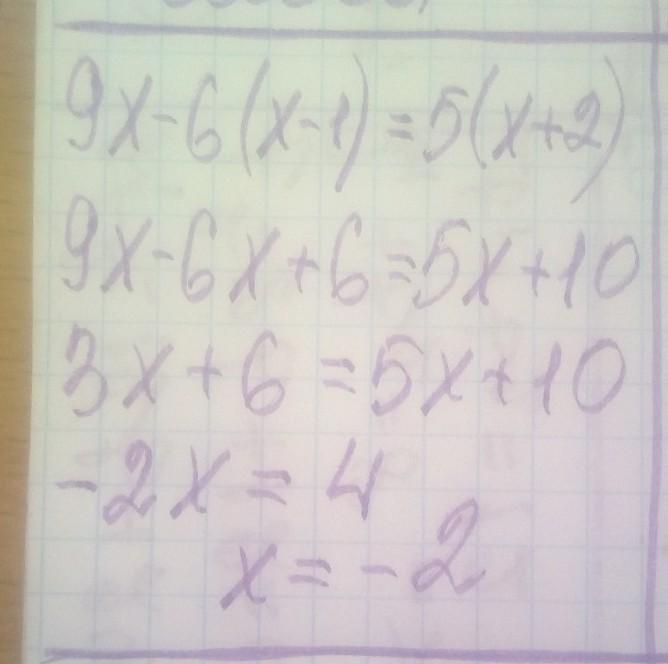 9x-6(x-1)=5(x+2)
9x-6x+6=5x+10
3x+6=5x+10
-2x=4
x=-2